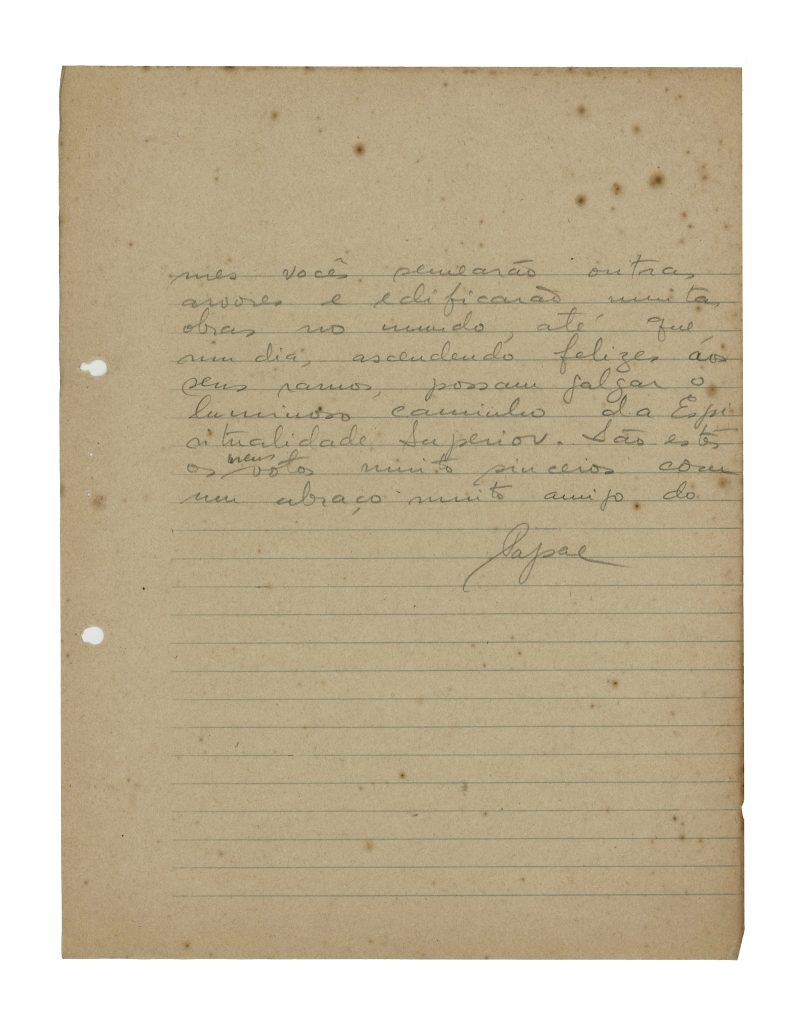 mes vocês semearão outras
arvores e edificarão muitas
obras no mundo, até que
num dia, ascendendo felizes áos
seus ramos, possam galgar o
luminoso caminho da Espi
ritualidade Superior. São estes
os meus votos muito sinceros com
um abraço muito amigo do
Papae